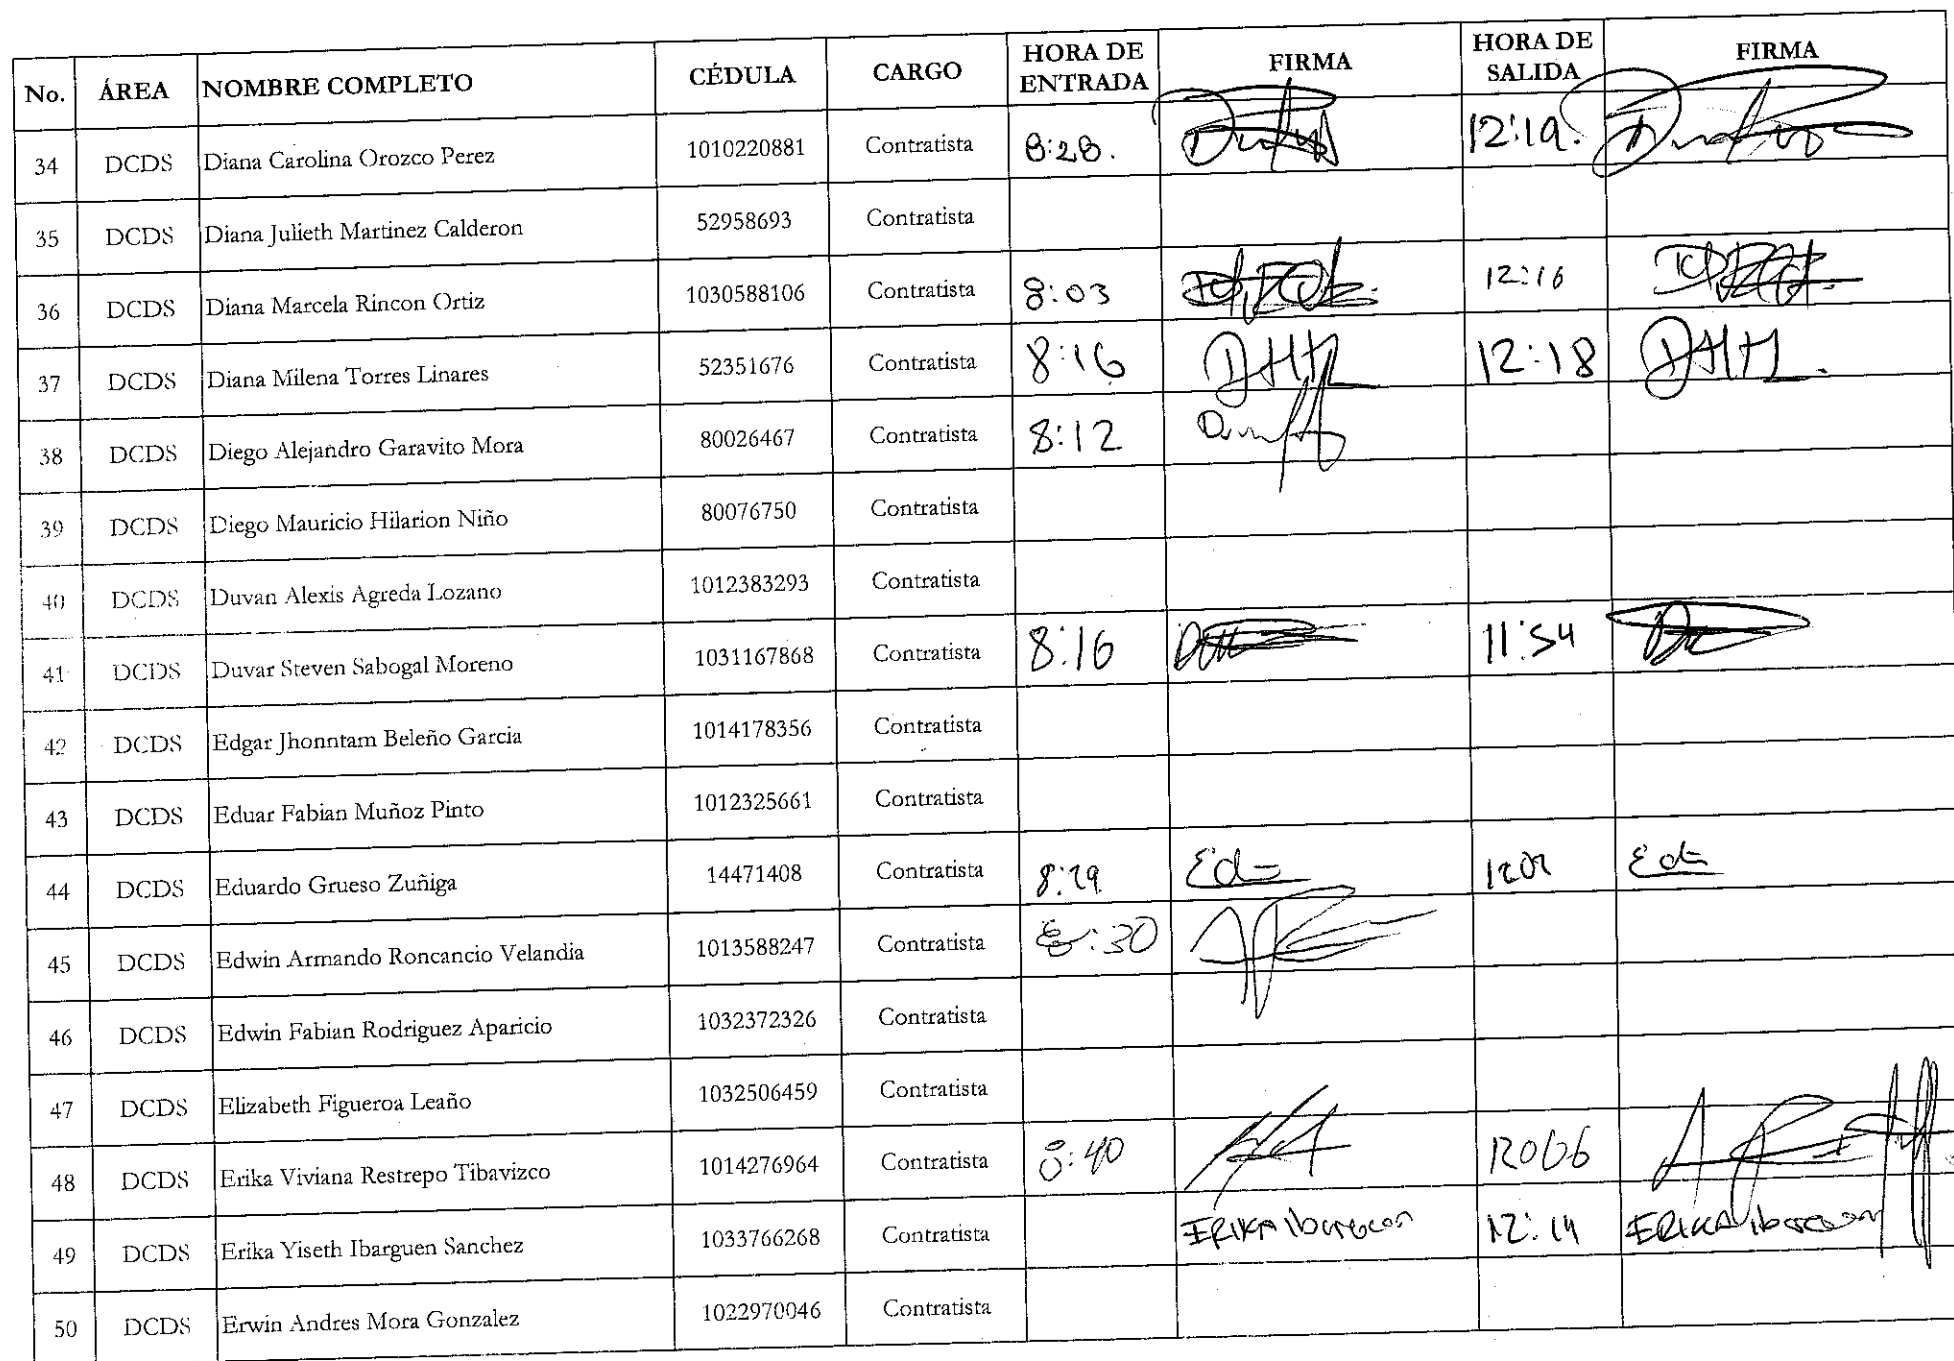 No. ÁREA NOMBRE COMPLETO CÉDULA CARGO HORA DE ENTRADA FIRMA HORA DE SALIDA FIRMA
34 DCDS Diana Carolina Orozco Perez 1010220881 Contratista 8:28. 12:19.
35 DCDS Diana Julieth Martinez Calderon 52958693 Contratista
36 DCDS Diana Marcela Rincon Ortiz 1030588106 Contratista 8:03 12:16
37 DCDS Diana Milena Torres Linares 52351676 Contratista 8:16 12:18
38 DCDS Diego Alejandro Garavito Mora 80026467 Contratista 8:12
39 DCDS Diego Mauricio Hilarion Niño 80076750 Contratista
40 DCDS Duvan Alexis Agreda Lozano 1012383293 Contratista
41 DCDS Duvar Steven Sabogal Moreno 1031167868 Contratista 8:16 11:54
42 DCDS Edgar Jhonntam Beleño Garcia 1014178356 Contratista
43 DCDS Eduar Fabian Muñoz Pinto 1012325661 Contratista
44 DCDS Eduardo Grueso Zuñiga 14471408 Contratista 8:29
45 DCDS Edwin Armando Roncancio Velandia 1013588247 Contratista 8:30
46 DCDS Edwin Fabian Rodriguez Aparicio 1032372326 Contratista
47 DCDS Elizabeth Figueroa Leaño 1032506459 Contratista
48 DCDS Erika Viviana Restrepo Tibavizco 1014276964 Contratista 8:40
49 DCDS Erika Yiseth Ibarguen Sanchez 1033766268 Contratista ERIKA Ibarguen 12:14 ERIKA Ibarguen
50 DCDS Erwin Andres Mora Gonzalez 1022970046 Contratista